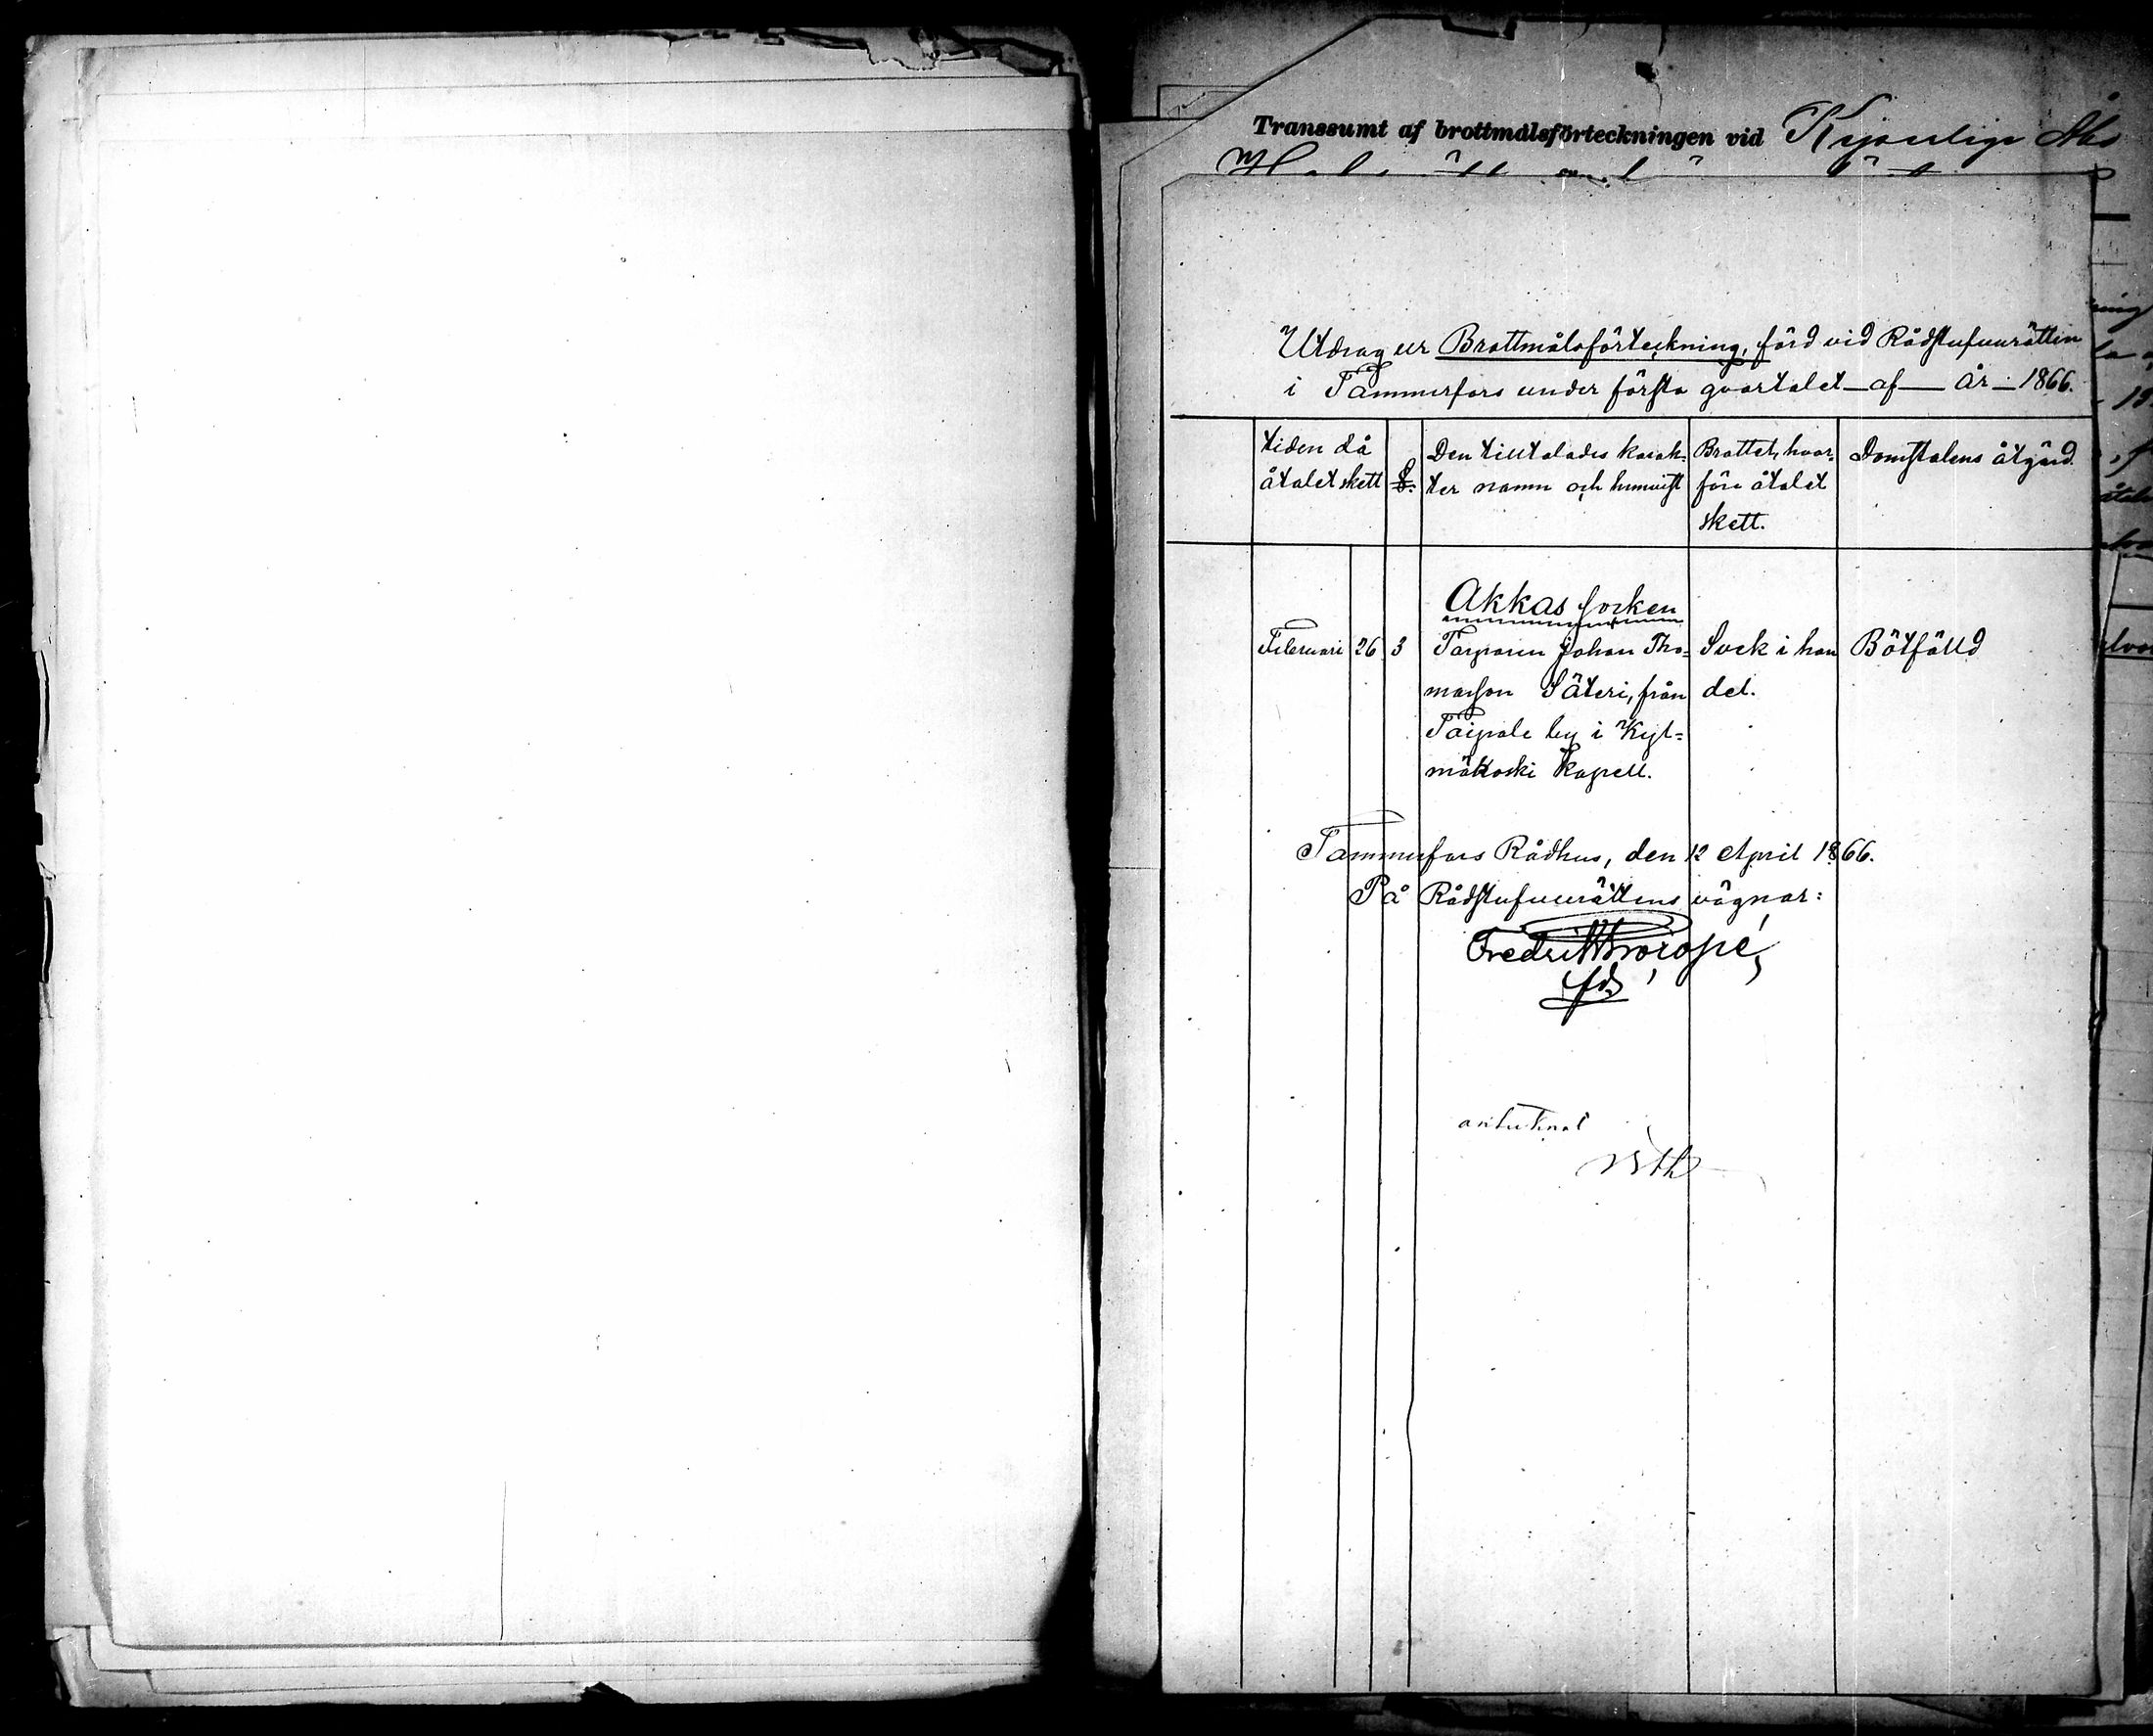 Transsumt af brottmålsförteckningen vid Kejserliga Åbo
Utdrag ur Brottmålsförteckning, förd vid Rådstufvurätten
i Tammerfors under första qvartalet af år 1866.
tiden då åtalet skett
§.
Den tilltalades karak=
ter namn och hemvist
Brottet, hvar=
före åtalet
skett.
Domstolens åtgärd.
Akkas socken
Februari 26 3 Torparen Johan Tho= Svek i han Bötfälld
masson Säteri, från del.
Taipale by i Kyl=
mäkoski Kapell.
Tammerfors Rådhus, den 12 April 1866.
På Rådstufvurättens vägnar:
Fredrik Procopé,
antecknat